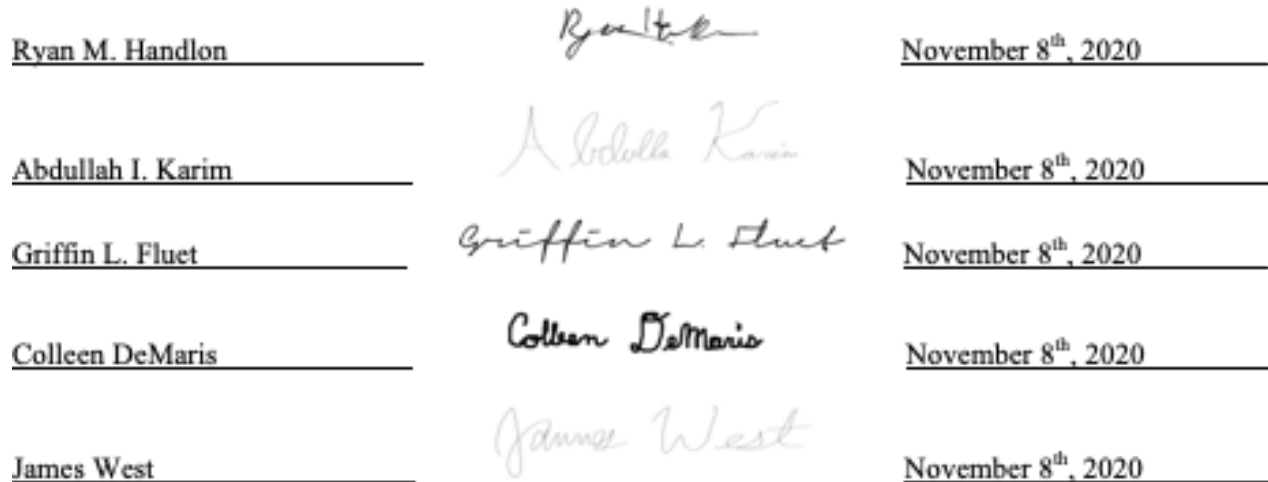 Ryan M. Handlon Ryan H November 8th, 2020
Abdullah I. Karim Abdulla Karim November 8th, 2020
Griffin L. Fluet Griffin L. Fluet November 8th, 2020
Colleen DeMaris Colleen DeMaris November 8th, 2020
James West James West November 8th, 2020